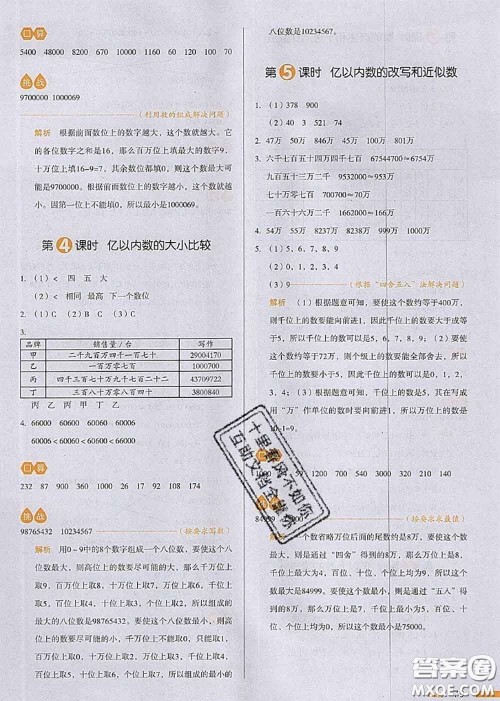 口算
5400 48000 8000 19000 1000 60 120 90
挑战
9700000 1000069
(利用数的组成解决问题)
解析 根据前面数位上的数字越大，这个数就越大。它
的各位数字之和是16，那么百万位上填最大的数字9，
十万位上填16-9=7，其余数位都填0，所以这个数最大可
能是9700000。根据前面数位上的数字越小，这个数就越
小。因第一位上不能填0，所以最小是1000069。
第4课时 亿以内数的大小比较
1. (1)< 四 五 大
(2)< 相同 最高 下一个数位
2. < > < > < >
3.
品牌 销售量/台 写作
甲 二千九百万四千一百七十 29004170
乙 一百万零七百 1000700
丙 四千三百七十万九千七百二十二 43709722
丁 三百八十万零八百四十 3800840
丙 乙 丙 甲 丁 乙
4. 66000
60006<60060<60600<66000
口算
232 87 900 360 1000 26 10 92 108 174
挑战
98765432 10234567
(按要求写数)
解析 用0-9中的8个数字组成一个八位数，要使这个八
位数最大，则高位上的数要尽可能的大，那么千万位上
取9，百万位上取8，十万位上取7，万位上取6，千位上
取5，百位上取4，十位上取3，个位上取2，所以组成的
最大的八位数是98765432，要使组成的八位数最小，则
高位上的数要尽可能的小，千万位上取1，百万位上取
0，十万位上取2，万位上取3，千位上取4，百位上取
5，十位上取6，个位上取7，所以组成的最小的
八位数是10234567。
第5课时 亿以内数的改写和近似数
1. (1)378 900
(2)40 3 521 74
2. 47万 50万 50万 100万 940万 1000万
3. 六千七百五十四万四千七百 67544700≈6754万
九百五十三万二千 9532000≈953万
七十万零七百 700700≈70万
一百六十六万二千 1662000≈166万
4. 54万 55万 8271万 8272万 835万 836万
5. (1)5, 6, 7, 8, 9
(2)0, 1, 2, 3, 4
(3)9 (根据“四舍五入”法解决问题)
解析 (1)根据题意可知，要使这个数约等于400万，
则千位上的数要能向前进1，因此千位上的数要大于或等
于5，所以千位上的数可以是5，6，7，8，9；(2)要使
这个数约等于400万，则这个数要能全部舍去，所以千
位上的数要小于5，所以千位上的数可以是0，1，2，
3，4；(3)根据题意可知，要使这个数的万位是0，在写
成用“万”作单位的数时要向前进1，所以万位上的数是
10-1=9。
130 1500 900 150 71 140 320
84999
(按要求求最值)
一个数省略万位后面的尾数约是8万，要使这个数
最大，则应是通过“四舍”得到的8万，那么这个数万
位上是8，千位上最大是4，百位、十位、个位上最大为
9，所以这个数最大是84999。要使这个数最小，则应是通过“五入”得
到的8万，那么这个数万位上是7，千位上最小是5，百位、十位、
个位上最小为0，所以这个数最小是75000。
十里春风不如你
答案圈
MXQE.COM